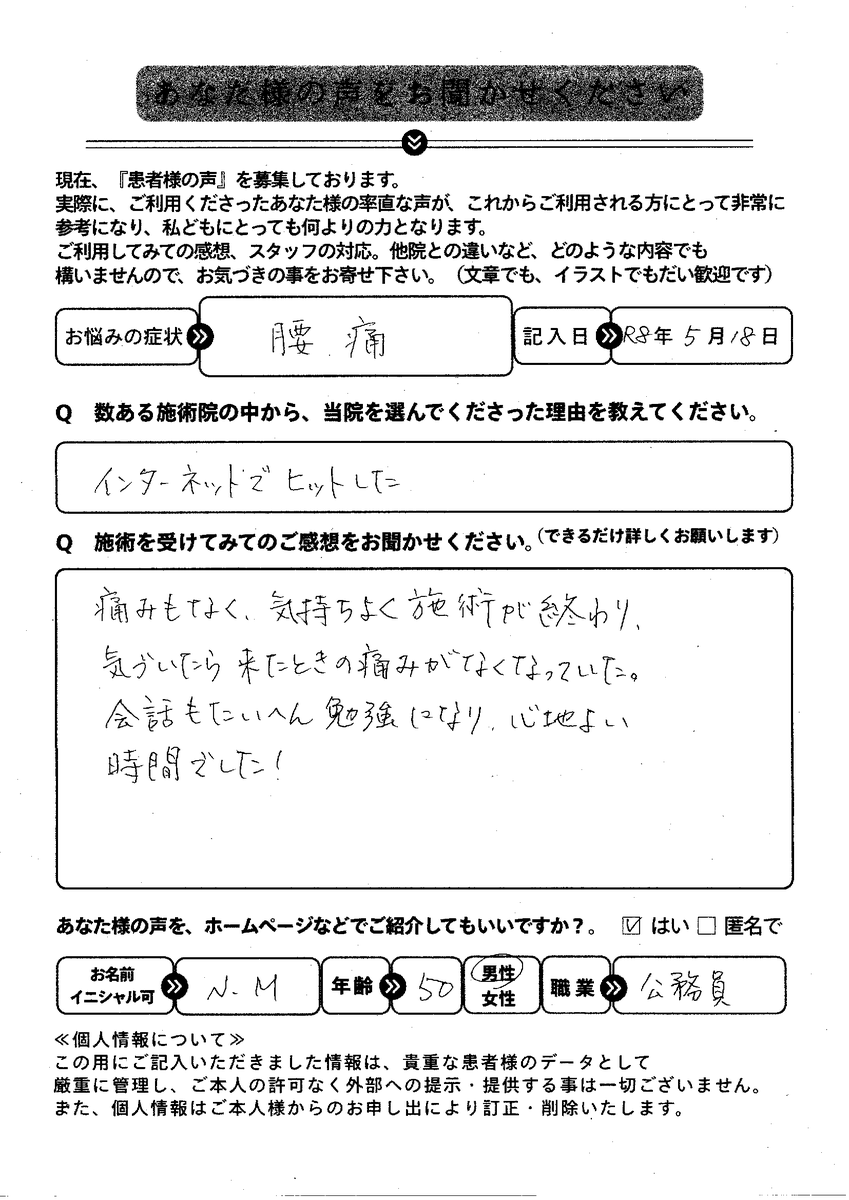 あなた様の声をお聞かせください
現在、『患者様の声』を募集しております。
実際に、ご利用くださったあなた様の率直な声が、これからご利用される方にとって非常に
参考になり、私どもにとっても何よりの力となります。
ご利用してみての感想、スタッフの対応。他院との違いなど、どのような内容でも
構いませんので、お気づきの事をお寄せ下さい。（文章でも、イラストでもだい歓迎です）
お悩みの症状 腰痛 記入日 R8年 5月18日
Q 数ある施術院の中から、当院を選んでくださった理由を教えてください。
インターネットでヒットした
Q 施術を受けてみてのご感想をお聞かせください。（できるだけ詳しくお願いします）
痛みもなく、気持ちよく施術が終わり、
気づいたら来たときの痛みがなくなっていた。
会話もたいへん勉強になり、心地よい
時間でした！
あなた様の声を、ホームページなどでご紹介してもいいですか？。 ☑ はい □ 匿名で
お名前 イニシャル可 N.M 年齢 50 男性 女性 職業 公務員
≪個人情報について≫
この用にご記入いただきました情報は、貴重な患者様のデータとして
厳重に管理し、ご本人の許可なく外部への提示・提供する事は一切ございません。
また、個人情報はご本人様からのお申し出により訂正・削除いたします。